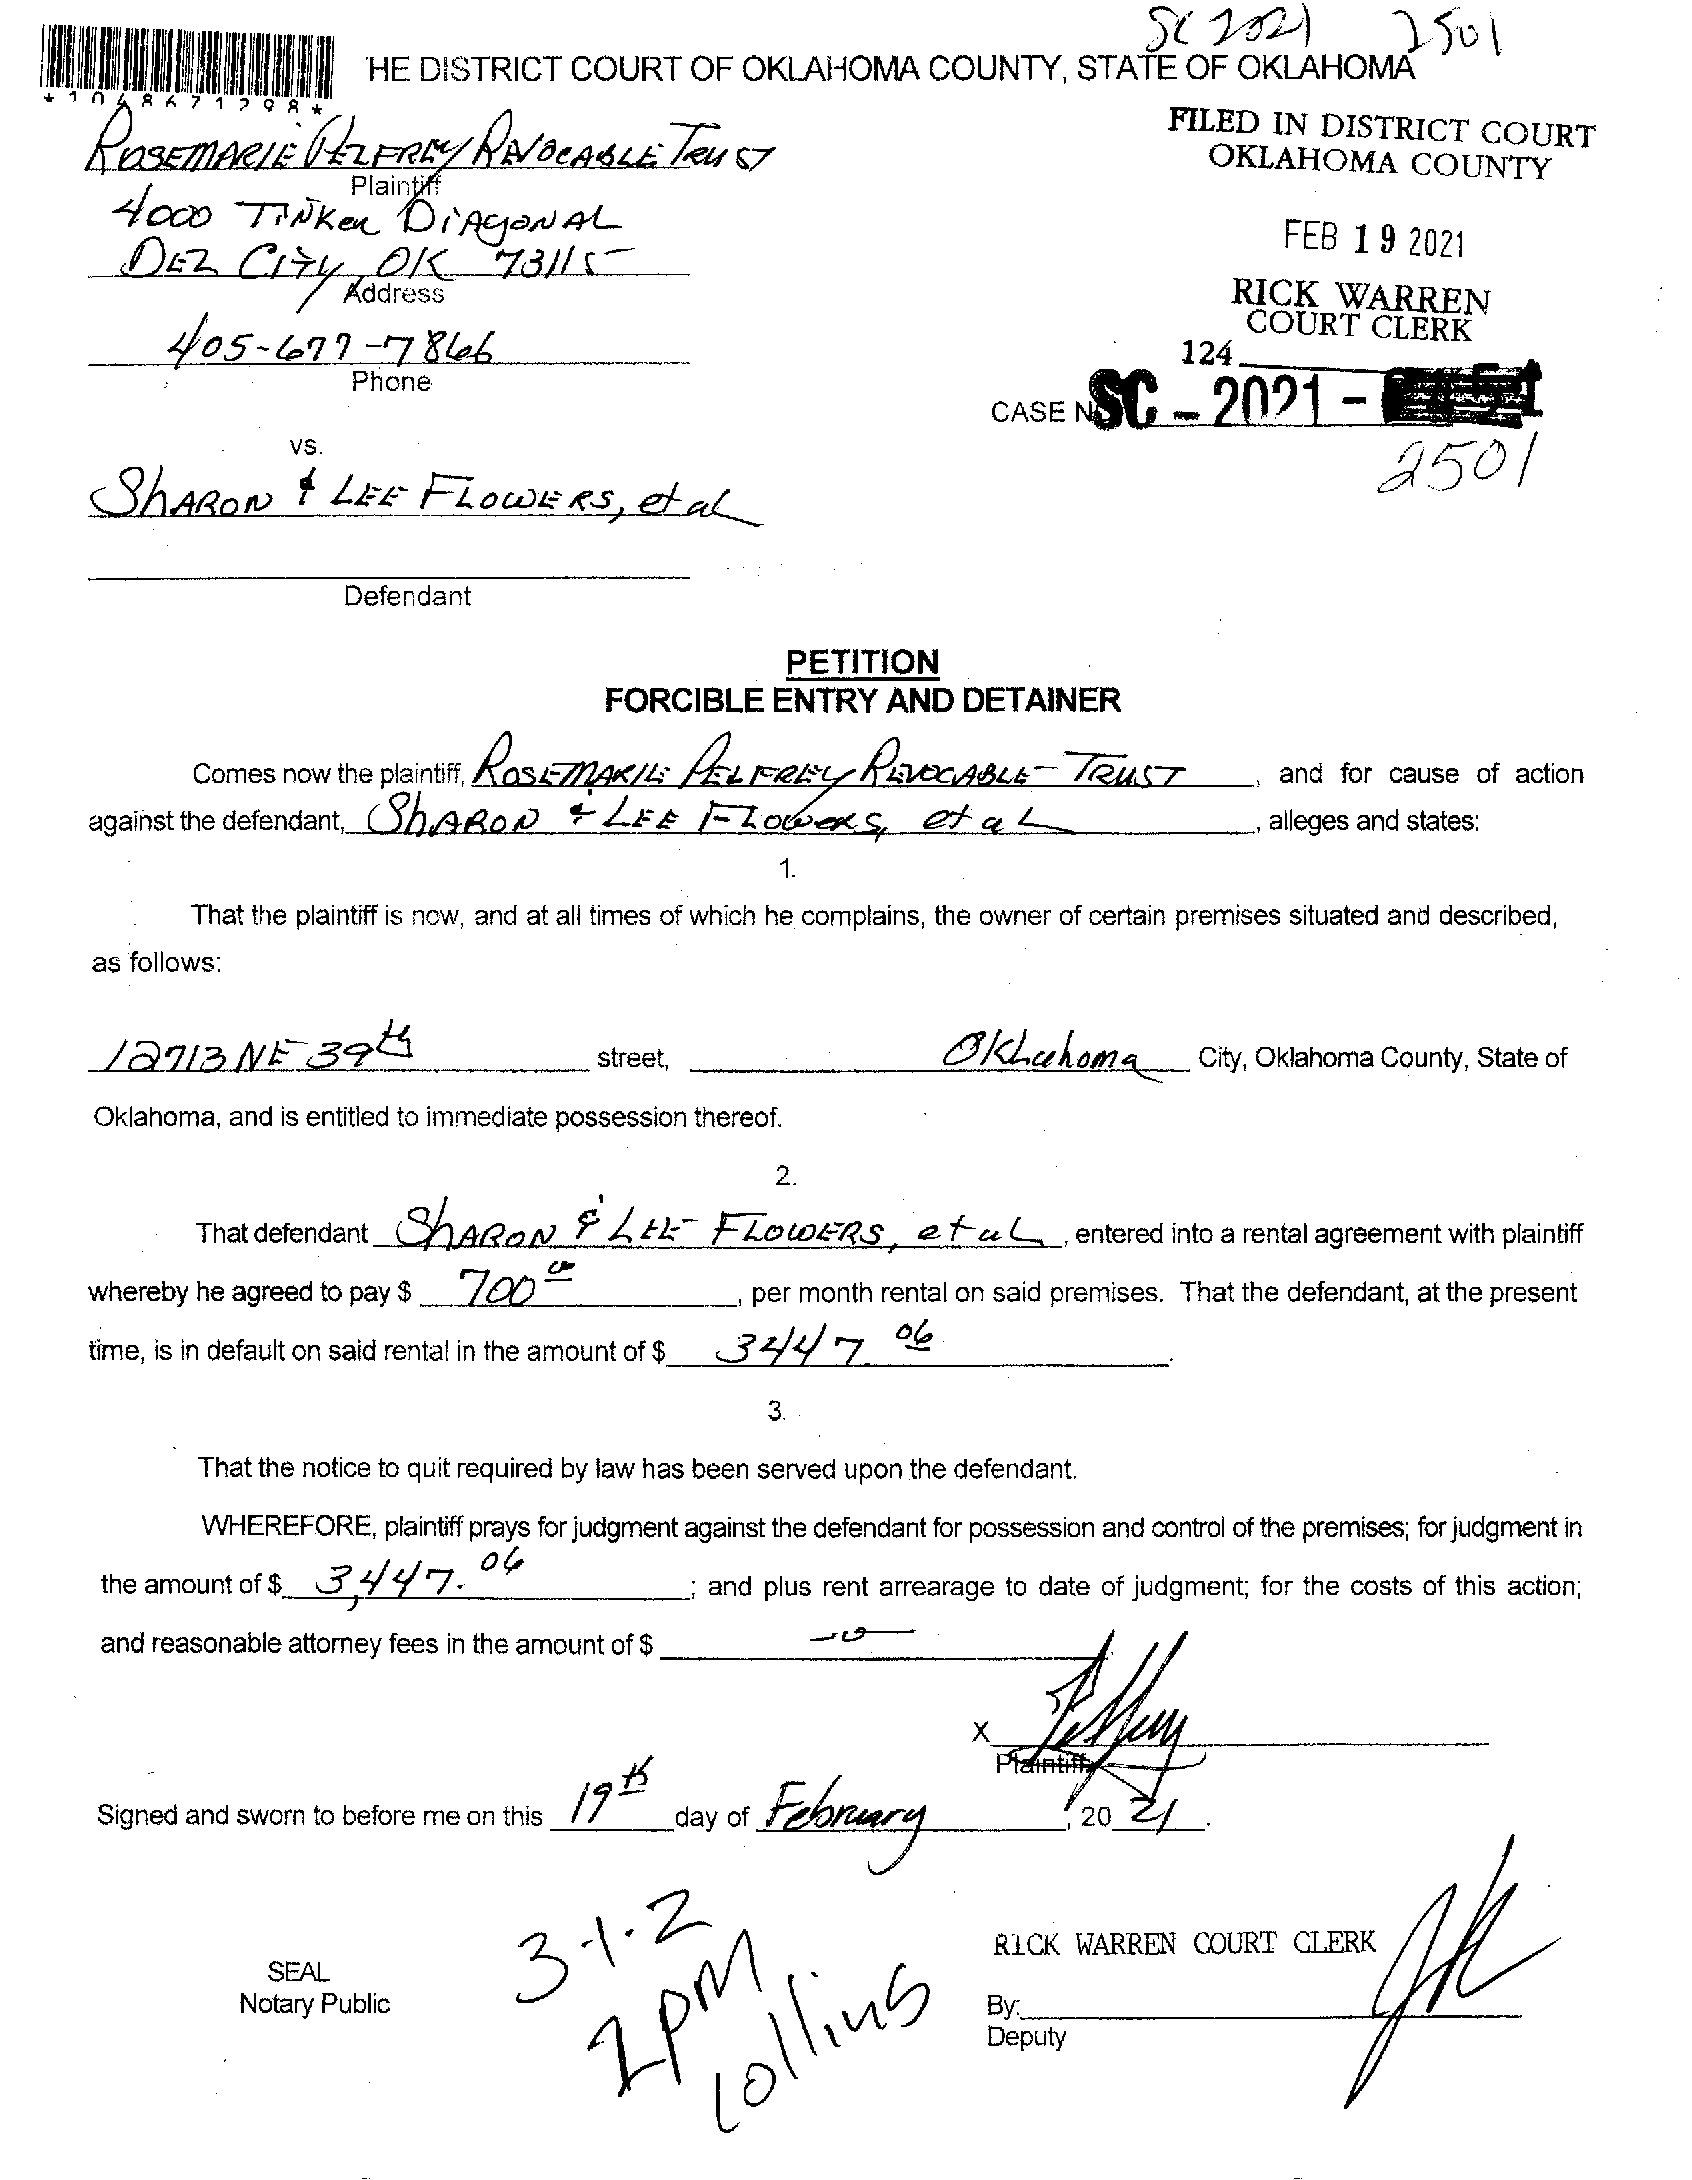 SC 2021 2501
HE DISTRICT COURT OF OKLAHOMA COUNTY, STATE OF OKLAHOMA
*1048671298*
FILED IN DISTRICT COURT
OKLAHOMA COUNTY
ROSEMARIE PELFREY REVOCABLE TRUST
Plaintiff
4000 TINKER DIAGONAL
DEL CITY, OK 73115
Address
FEB 19 2021
RICK WARREN
COURT CLERK
405-677-7866
Phone
124
CASE N SC - 2021 -
2501
vs.
SHARON & LEE FLOWERS, et al
Defendant
PETITION
FORCIBLE ENTRY AND DETAINER
Comes now the plaintiff, ROSEMARIE PELFREY REVOCABLE TRUST, and for cause of action
against the defendant, SHARON & LEE FLOWERS, et al, alleges and states:
1.
That the plaintiff is now, and at all times of which he complains, the owner of certain premises situated and described,
as follows:
12713 NE 39th street, Oklahoma City, Oklahoma County, State of
Oklahoma, and is entitled to immediate possession thereof.
2.
That defendant SHARON & LEE FLOWERS, et al, entered into a rental agreement with plaintiff
whereby he agreed to pay $ 700 00, per month rental on said premises. That the defendant, at the present
time, is in default on said rental in the amount of $ 3447. 06.
3.
That the notice to quit required by law has been served upon the defendant.
WHEREFORE, plaintiff prays for judgment against the defendant for possession and control of the premises; for judgment in
the amount of $ 3,447. 06; and plus rent arrearage to date of judgment; for the costs of this action;
and reasonable attorney fees in the amount of $ -0-
X
Plaintiff
Signed and sworn to before me on this 19th day of February, 20 21.
3-1-2
2PM
Collins
SEAL
Notary Public
RICK WARREN COURT CLERK
By:
Deputy